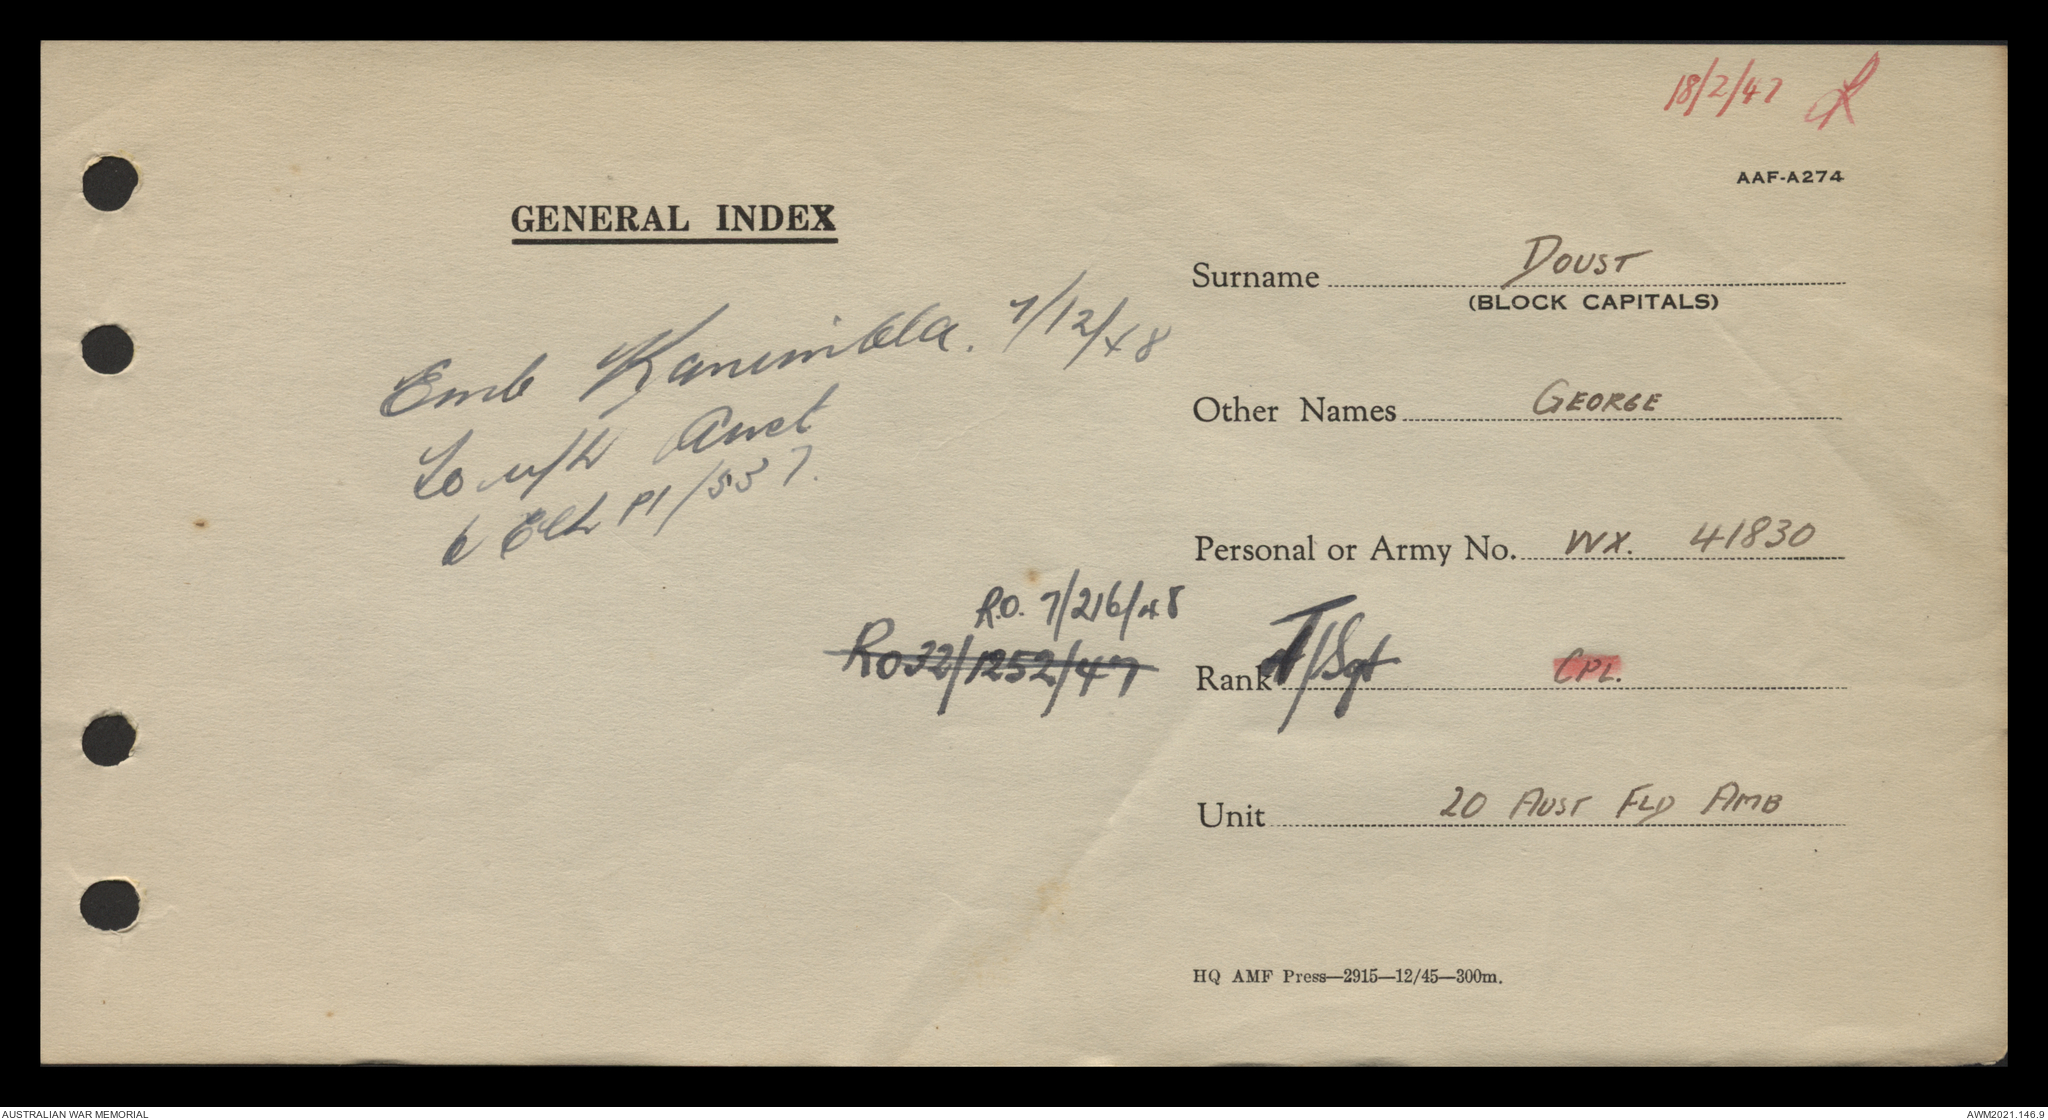 18/2/47
AAF-A274
GENERAL INDEX
Surname DOUST
(BLOCK CAPITALS)
Emb Kanimbla. 7/12/48
Other Names GEORGE
to Aust
P1/537.
Personal or Army No. WX. 41830
R.O. 7/216/48
Ro32/1252/47
Rank T/Sgt CPL.
Unit 20 AUST FLD AMB
HQ AMF Press—2915—12/45—300m.
AUSTRALIAN WAR MEMORIAL
AWM2021.146.9